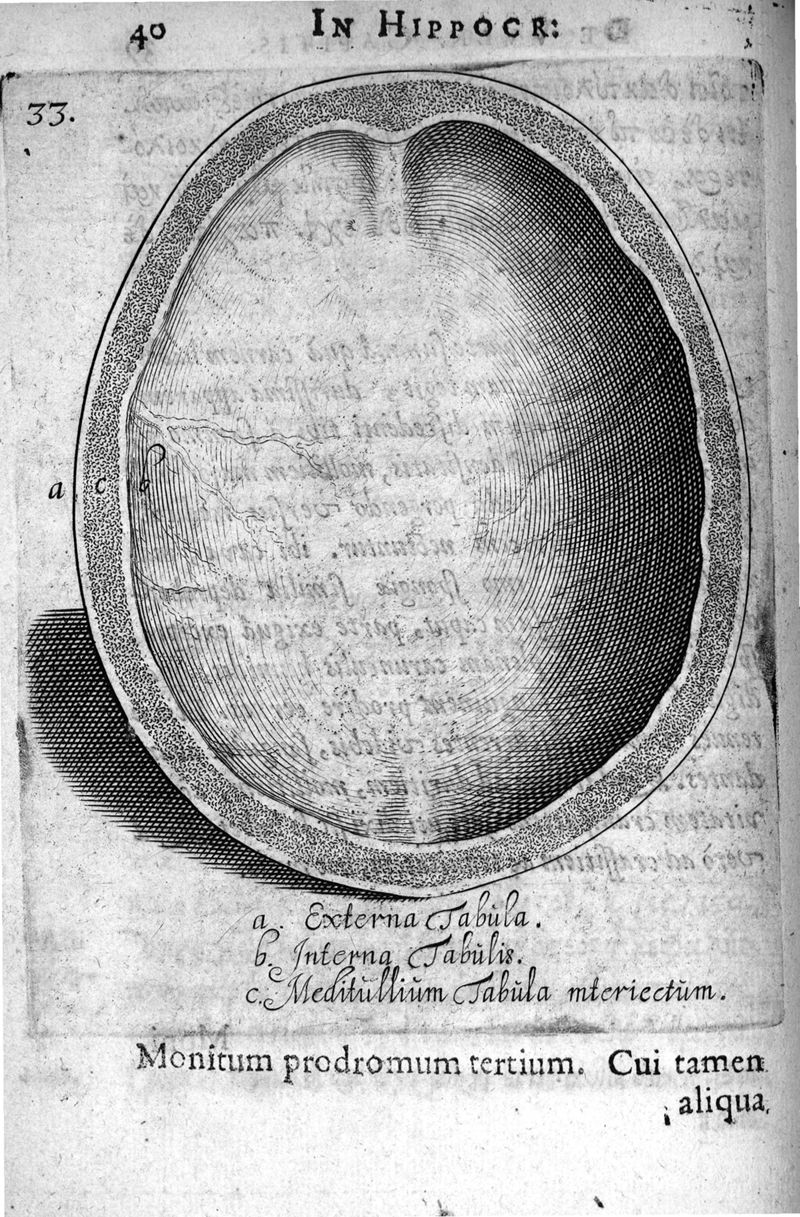 40 IN HIPPOCR:
33.
a c b
a. Externa Tabula.
b. Interna Tabulis.
c. Meditullium Tabula interiectum.
Monitum prodromum tertium. Cui tamen
aliqua,